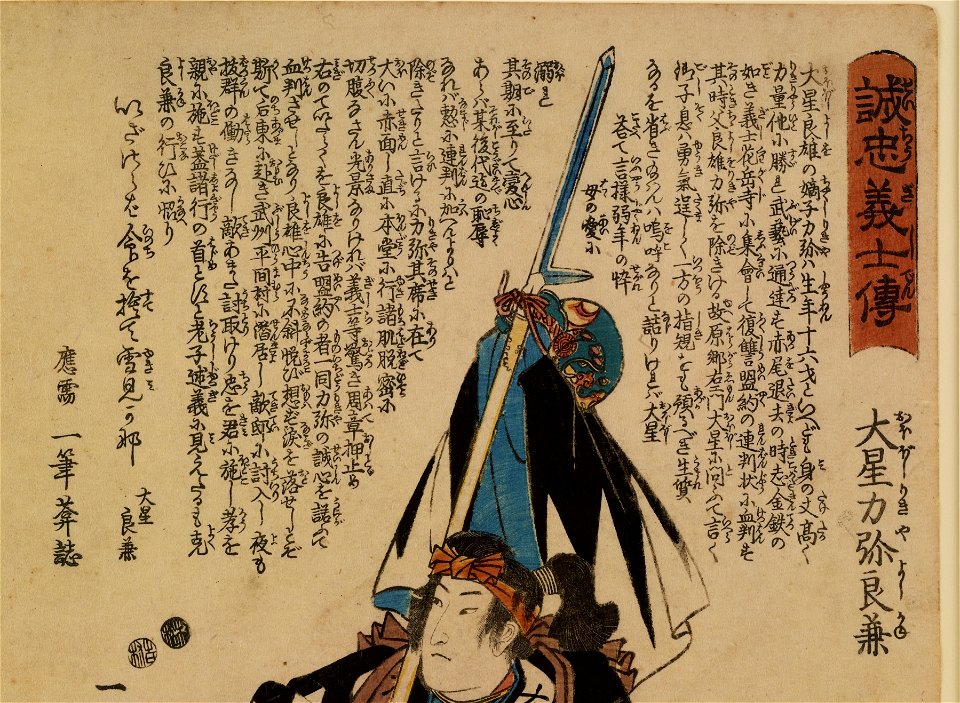 誠忠義士傳
大星力弥良兼
大星良雄の嫡子力弥ハ生年十六才といへども身の丈高く
力量他に勝れ武藝に通達す赤尾退去の時志金鉄の
如き義士花岳寺に集會して復讐盟約の連判状に血判す
其時父良雄力弥を除きける故原郷右エ門大星に問ふて言く
御子息ハ勇氣逞しく一方の指揮とも頼むべき生質
なるを省きハ嗚呼ありと詰りけれバ大星
荅て言様弱年の忰
母の愛に
溺れ
其期に至りて心
あらバ某後代迄の恥辱
なれバ憗に連判に加へんよりハと
除きたりと言けるに力弥其席に在て
大いに赤面し直に本堂に行諸肌脱密に
切腹なさん光景なりけれバ義士等驚き周章押止め
右のていたらくを良雄に告盟約の者一同力弥の誠心を諾つて
血判させしとなり良雄心中に不斜想はず涙を落せしとぞ
斯て后東に赴き武州平間村に潜居し敵邸に討入し夜も
抜群の働きなし敵あまた討取けり忠を君に施し孝を
親に施す蓋諸行の首とすと老子述義に見えたるも克
良兼の行ひに
命を捨て雪見可那
大星良兼
應需 一筆葊誌
一